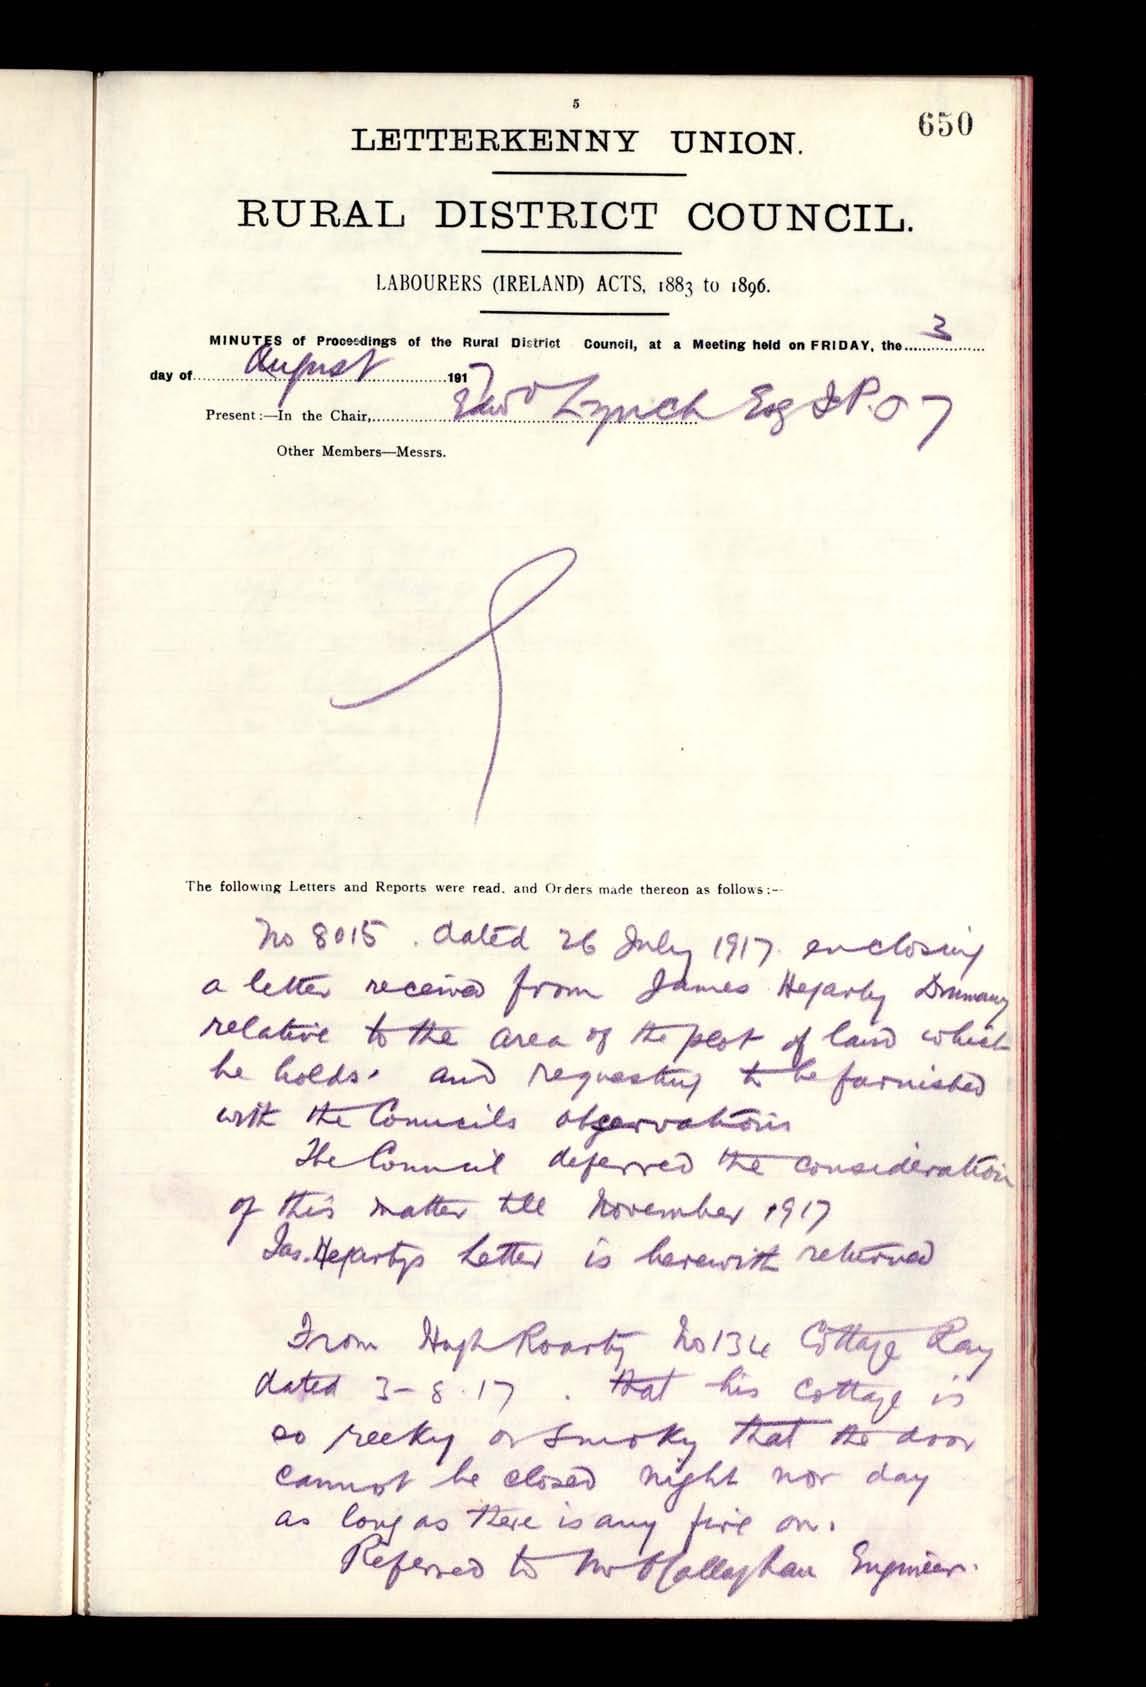 5
650
LETTERKENNY UNION.
RURAL DISTRICT COUNCIL.
LABOURERS (IRELAND) ACTS, 1883 to 1896.
MINUTES of Proceedings of the Rural District Council, at a Meeting held on FRIDAY, the 3
day of August 1917
Present:—In the Chair, Edwd Lynch Esq J.P.
Other Members—Messrs.
The following Letters and Reports were read, and Orders made thereon as follows:—
No 8015. dated 26 July 1917. enclosing
a letter received from James Hegarty
relative to the area of the plot of land which
he holds. and requesting to be furnished
with the Councils observations
The Council deferred the consideration
of this matter till November 1917
Jas. Hegartys Letter is herewith returned
From Hugh Roarty No 134 Cottage Ray
dated 3-8.17. that his cottage is
so reeky or smoky that the door
cannot be closed night nor day
as long as there is any fire on.
Referred to Mr O'Callaghan Engineer.